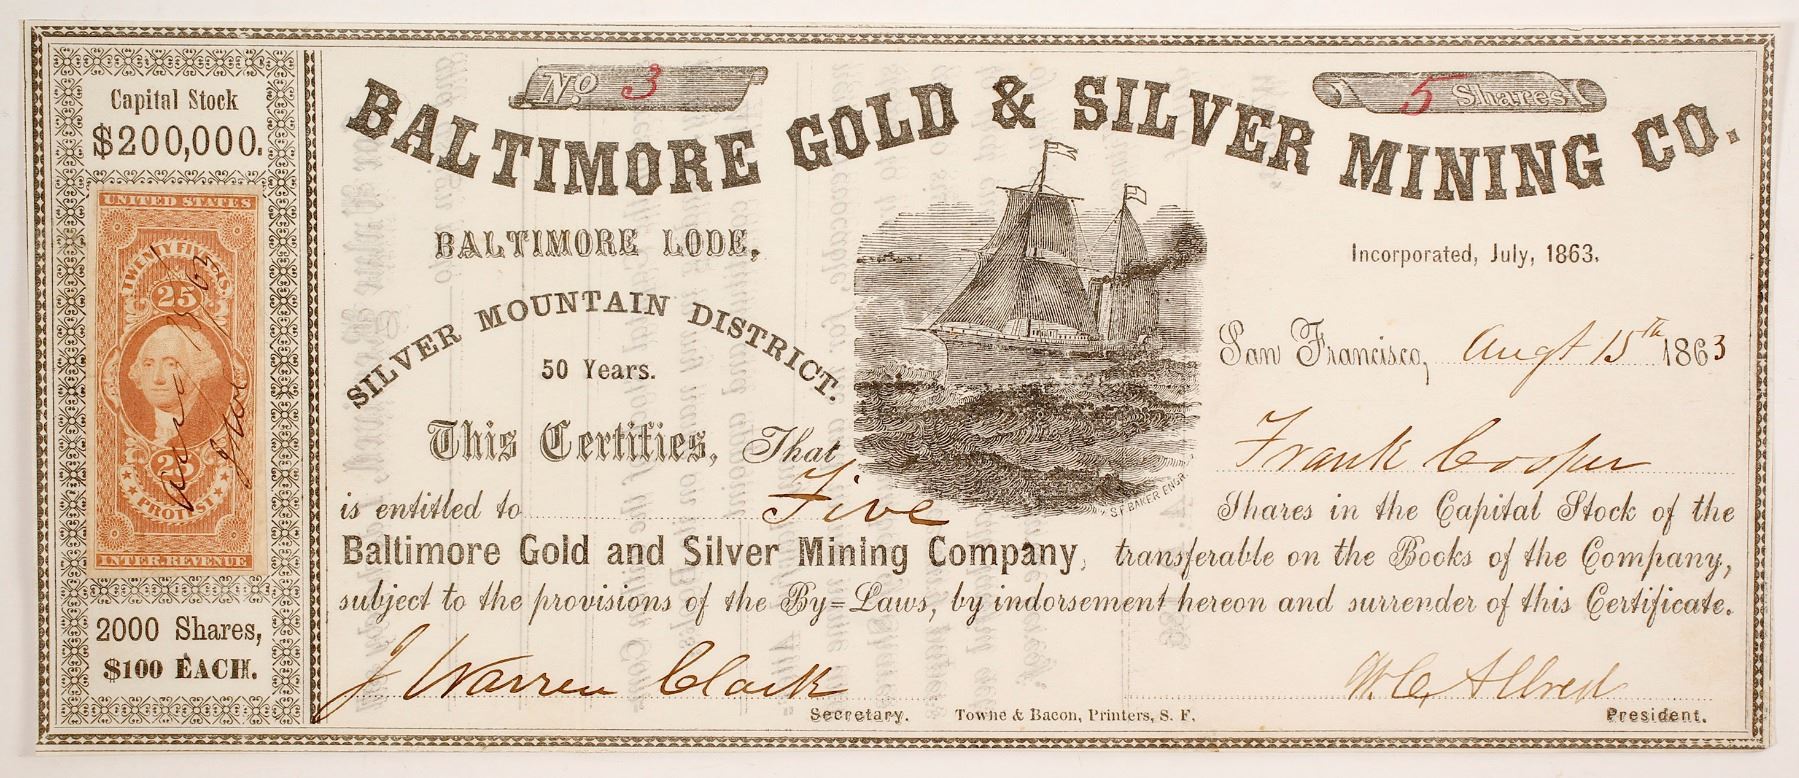 Capital Stock
$200,000.
UNITED STATES
TWENTY FIVE CENTS
25
25
PROTEST
INTER. REVENUE
2000 Shares,
$100 EACH.
No. 3
5 Shares
BALTIMORE GOLD & SILVER MINING CO.
BALTIMORE LODE,
Incorporated, July, 1863.
SILVER MOUNTAIN DISTRICT.
50 Years.
San Francisco, Augt 15th 1863
This Certifies, That Frank Cooper
S.F. BAKER ENGR.
is entitled to Five Shares in the Capital Stock of the
Baltimore Gold and Silver Mining Company, transferable on the Books of the Company,
subject to the provisions of the By=Laws, by indorsement hereon and surrender of this Certificate.
J Warren Clark
W. C. Allred
Secretary.
Towne & Bacon, Printers, S. F.
President.